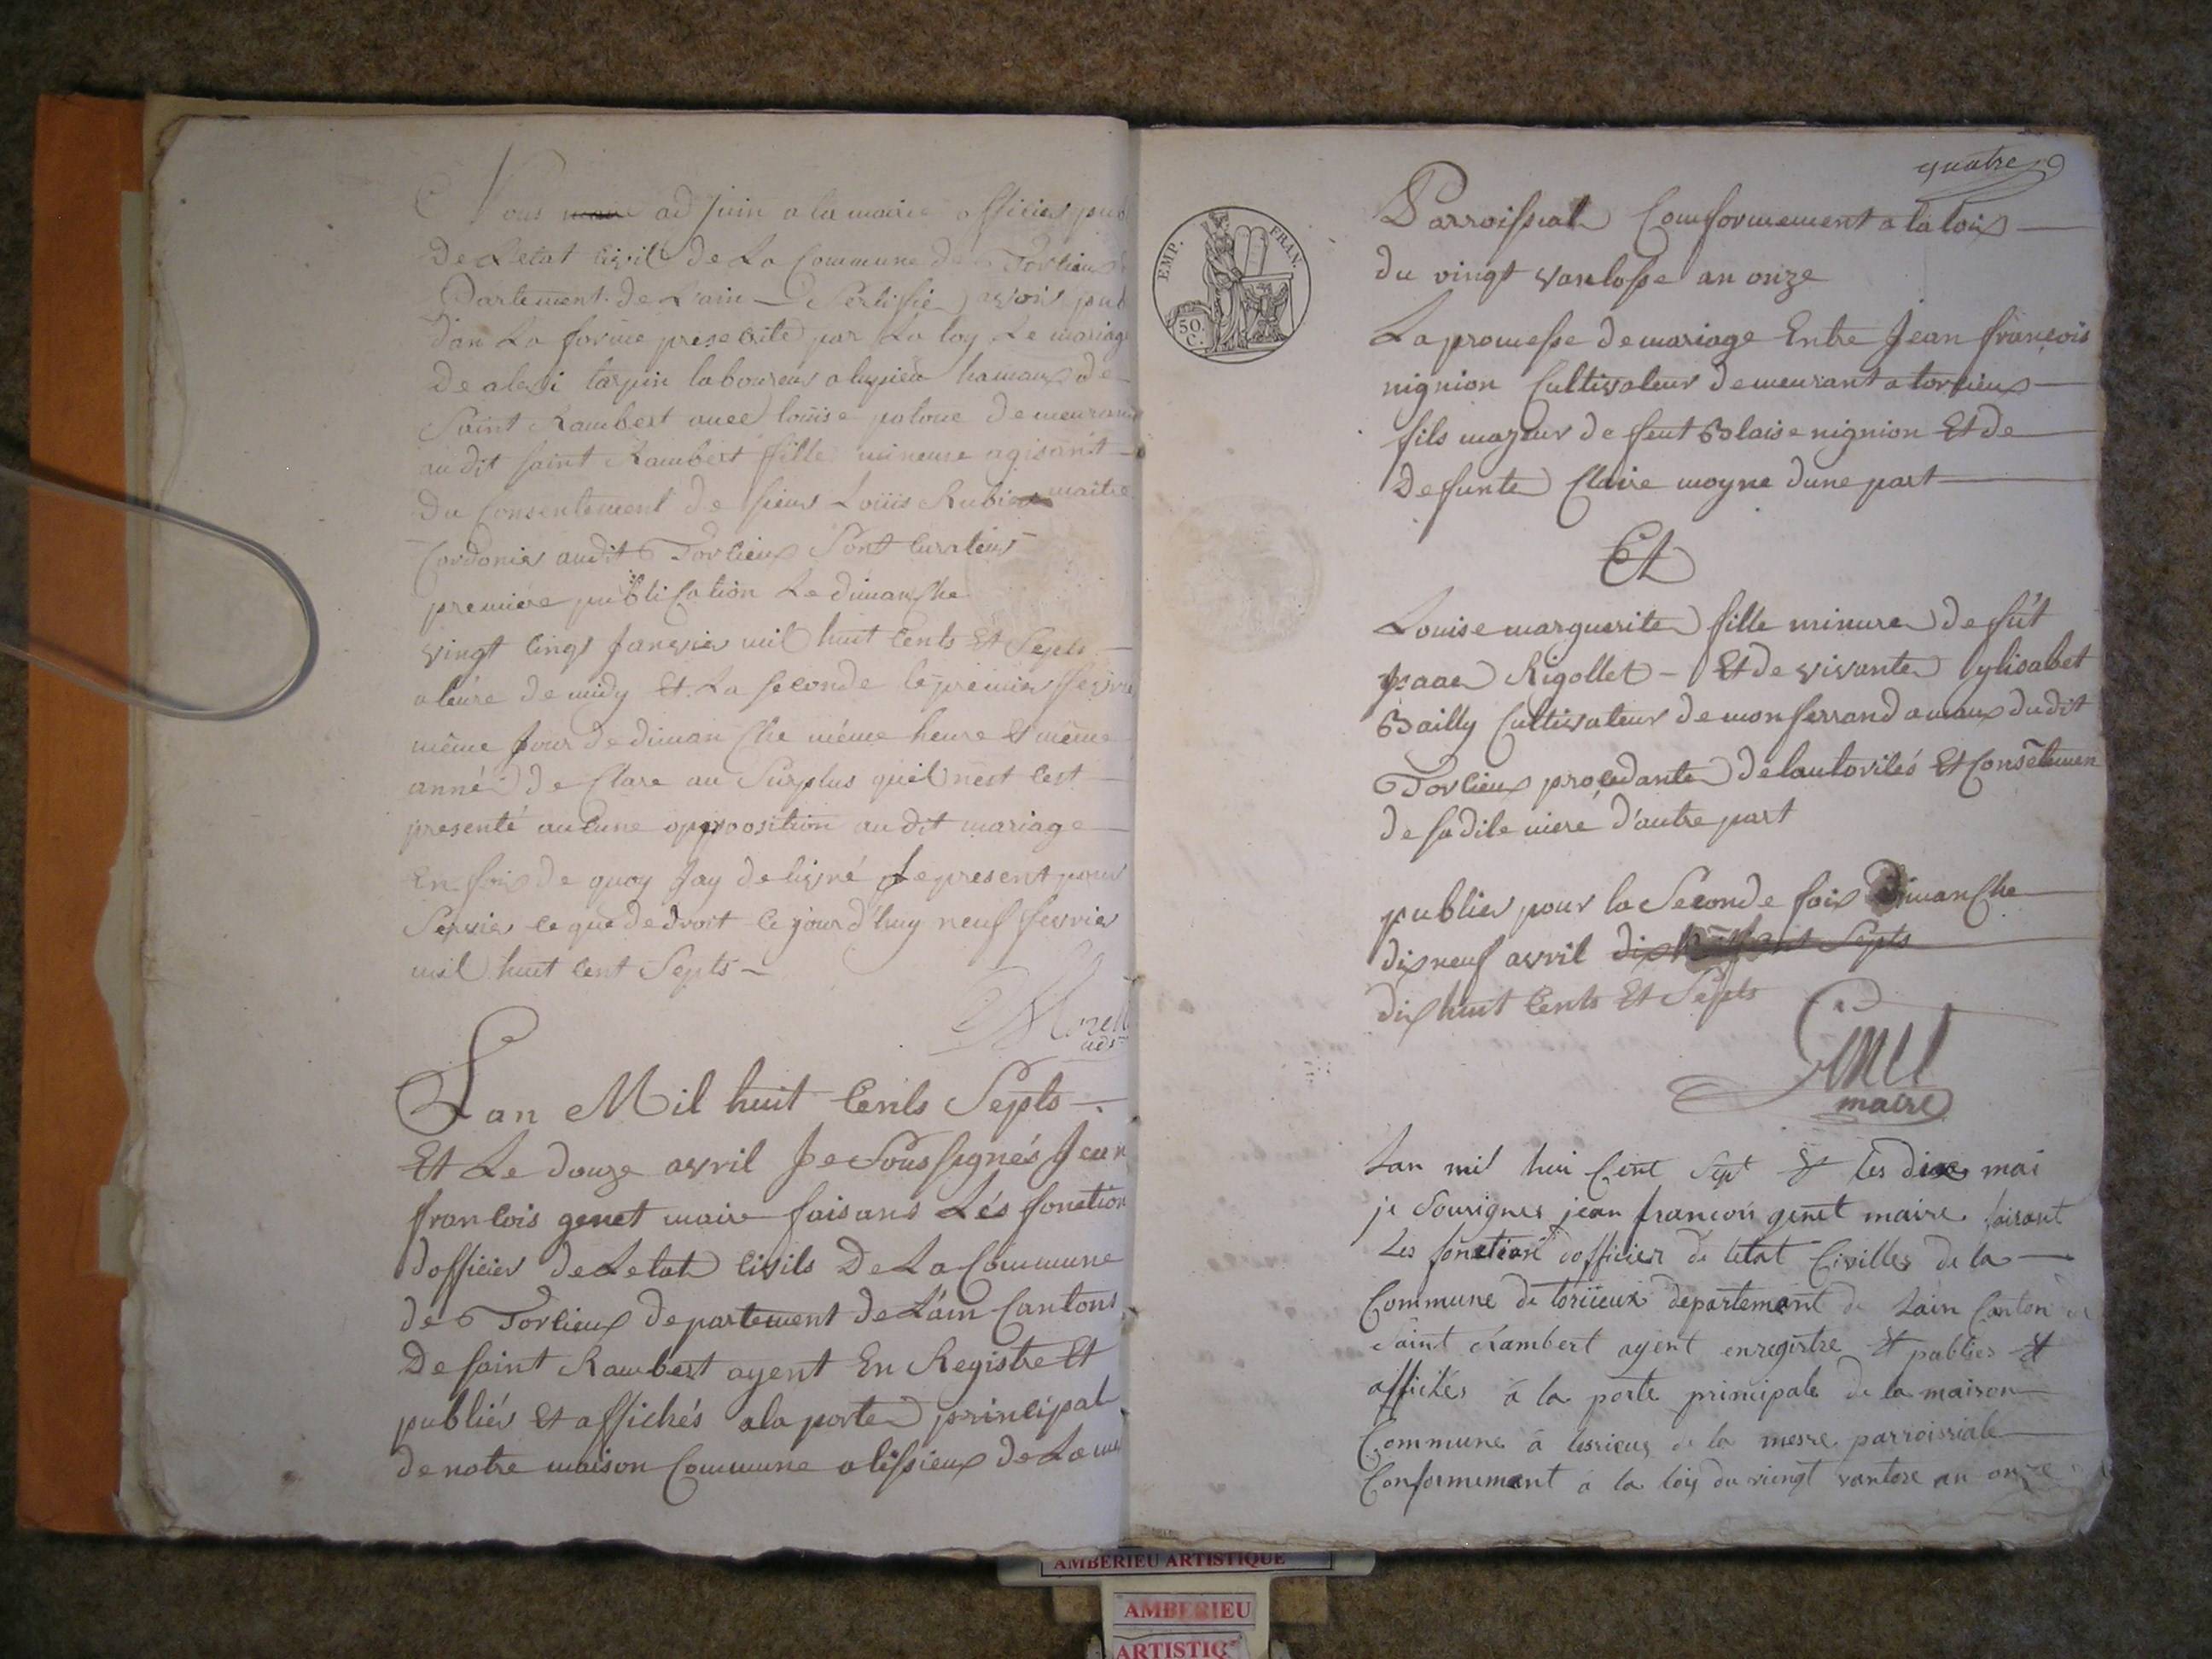 Nous maire adjuin a la mairie officier pub
De Letat Civil De La Commune de Torcieux
Dartement De Lain Sertifié avoir pub
Dan La forme presecrite par La loy Le mariage
De alexi tarpin laboureur a hamaux de
Saint Rambert avec louise palone demeurant
au dit saint Rambert fille mineure agisant
Du Consentement de sieur Louis Rubier maitre
Cordonier audit Torcieux Sont Curateur
premiere publication Le dimanche
vingt Cinqt Janvier mil huit Cents Et Septs
a leure de midy Et La seconde le premier fevrie
même Jour De dimanche même heure Et même
anné De Clare au Surplus quil nest Cest
presenté aucune opposition audit mariage
En fois de quoy Jay delivré Le present pour
Servir ce que de droit Ce jourd'huy neuf fevrier
mil huit Cent Septs
adj
Lan Mil huit Cents Septs
Et Le douze avril Je Soussignés Jean
francois genet maire faisans Lés fonction
dofficier De Letat Civils De La Commune
de Torcieux departement De Lain Cantons
De saint Rambert ayent En Registre Et
publiér Et affichés a la porte principal
de notre maison Commune a lissieux De La me
quatre
EMP. FRAN.
50. C.
Parroissial Comformement a la loix
du vingt vantosse an onze
La promesse de mariage Entre Jean françois
nignion Cultivateur demeurant a torcieux
fils mazeur de feut Blaise nignion Et de
Defunte Claire moyne dune part
Et
Louise marguerite fille minure de fut
Isaac Rigollet - Et de vivante ylisabet
Bailly Cultivateur de monferrand amaux dudit
Torcieux proçedante de lautorités Et Consetemen
de sa dite mere d'autre part
publier pour la Seconde fois Dimanche
dix neuf avril dix huit Cent Septs
dix huit Cents Et Septs
Genet
maire
Lan mil hui Cent Sept Et les dix mai
je Sousignes jean françois genet maire faisant
Les fonction dofficier de letat Civilles de la
Commune de torcieux departement de Lain Canton de
Saint Rambert ayent enregistre Et publies Et
affichés a la porte principale de la maison
Commune a lissieux de la messe parroissiale
Conformement a la loy du viengt vantose an onze
AMBERIEU ARTISTIQUE
AMBERIEU
ARTISTIQ